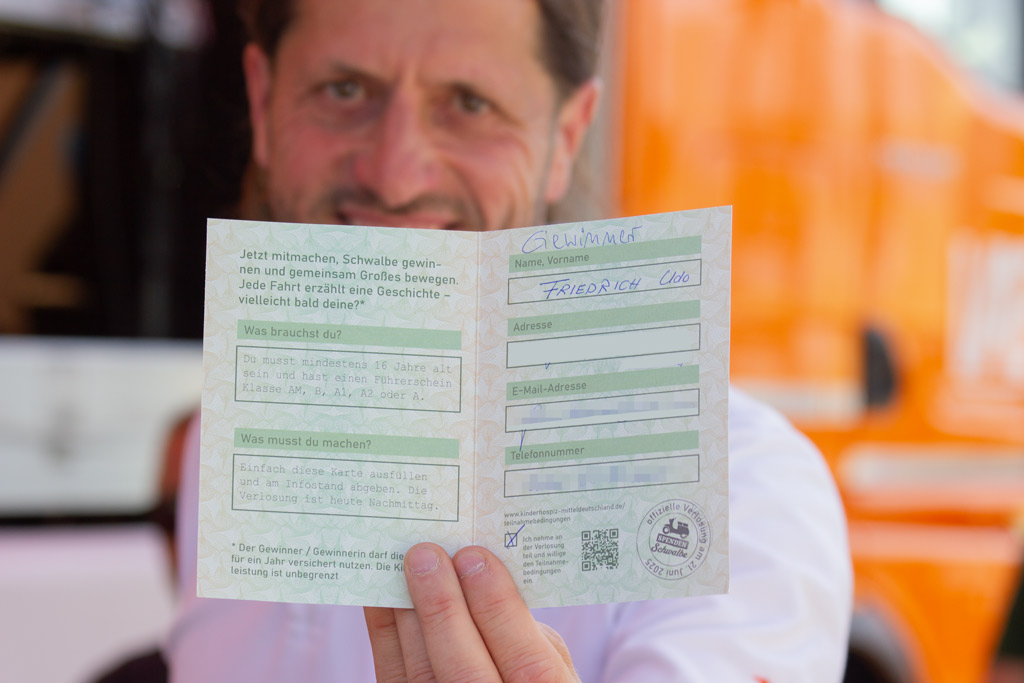 Jetzt mitmachen, Schwalbe gewin-
nen und gemeinsam Großes bewegen.
Jede Fahrt erzählt eine Geschichte –
vielleicht bald deine?*
Was brauchst du?
Du musst mindestens 16 Jahre alt
sein und hast einen Führerschein
Klasse AM, B, A1, A2 oder A.
Was musst du machen?
Einfach diese Karte ausfüllen
und am Infostand abgeben. Die
Verlosung ist heute Nachmittag.
* Der Gewinner / Gewinnerin darf die
für ein Jahr versichert nutzen. Die
leistung ist unbegrenzt
Gewinner
Name, Vorname
FRIEDRICH Udo
Adresse
E-Mail-Adresse
Telefonnummer
www.kinderhospiz-mitteldeutschland.de/
teilnahmebedingungen
Ich nehme an
der Verlosung
teil und willige
den Teilnahme-
bedingungen
ein
offizielle Verlosung am 21. Juni 2025
SPENDEN
Schwalbe